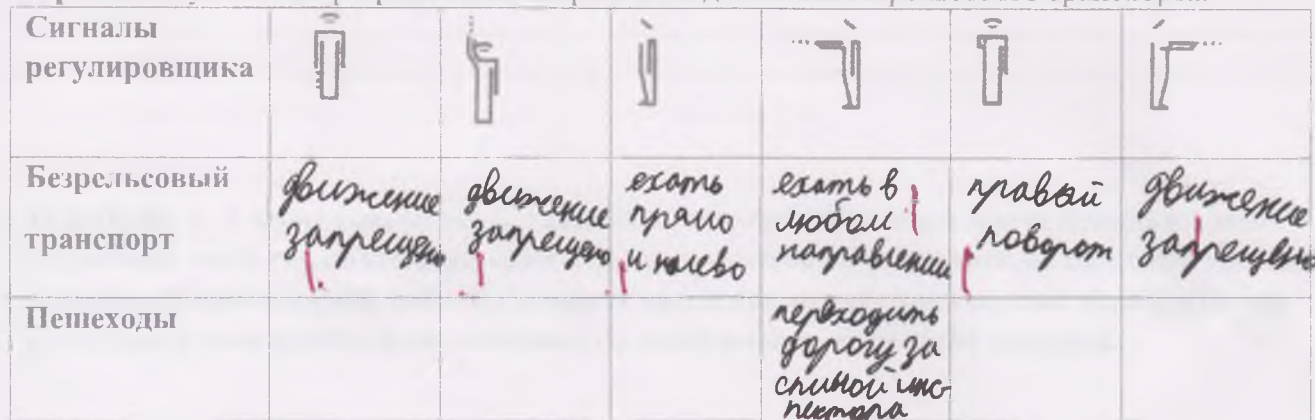 Сигналы
регулировщика
Безрельсовый
транспорт
движение
запрещено
движение
запрещено
ехать
прямо
и налево
ехать в
любом
направлении
правый
поворот
движение
запрещено
Пешеходы
переходить
дорогу за
спиной инс-
пектора